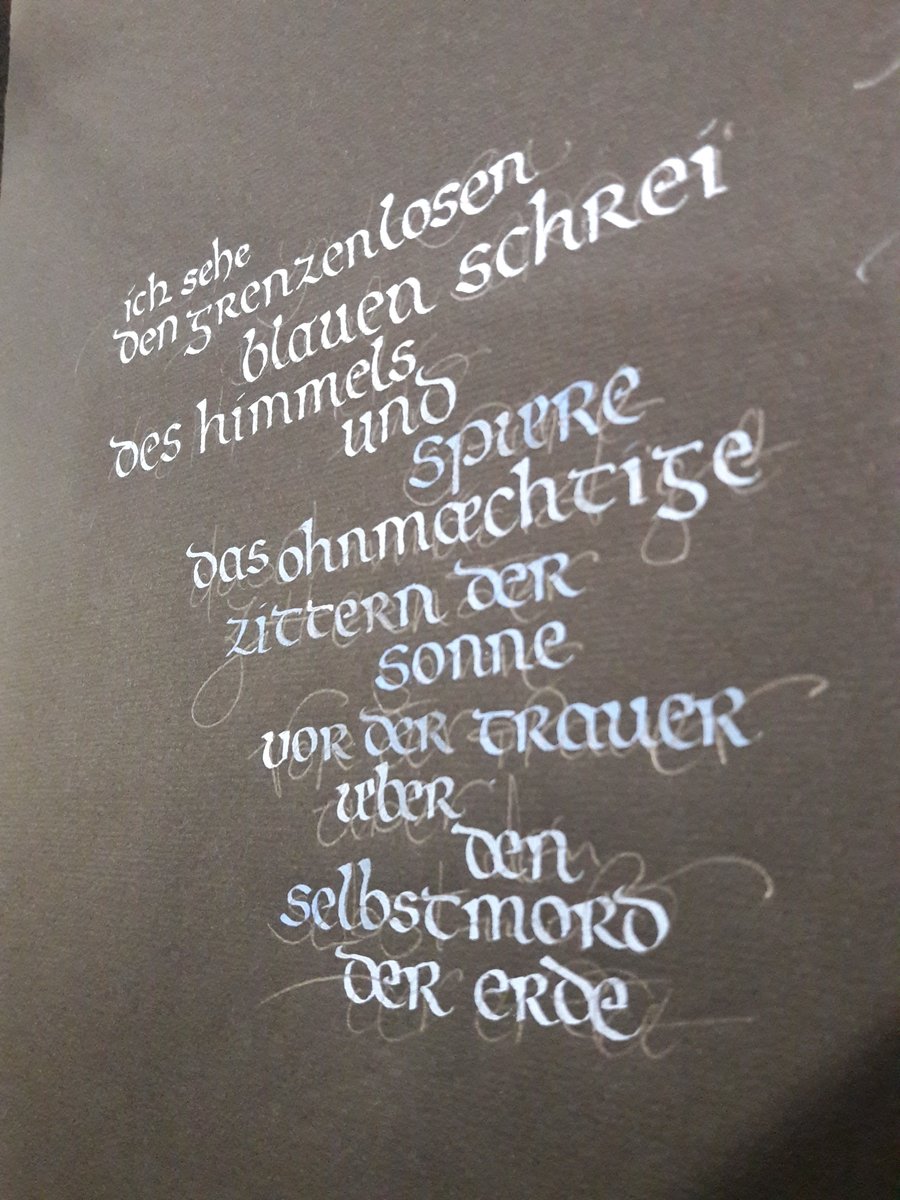 ich sehe
den grenzenlosen
blauen schrei
des himmels
und
spuere
das ohnmæchtige
zittern der
sonne
vor der trauer
ueber
den
selbstmord
der erde